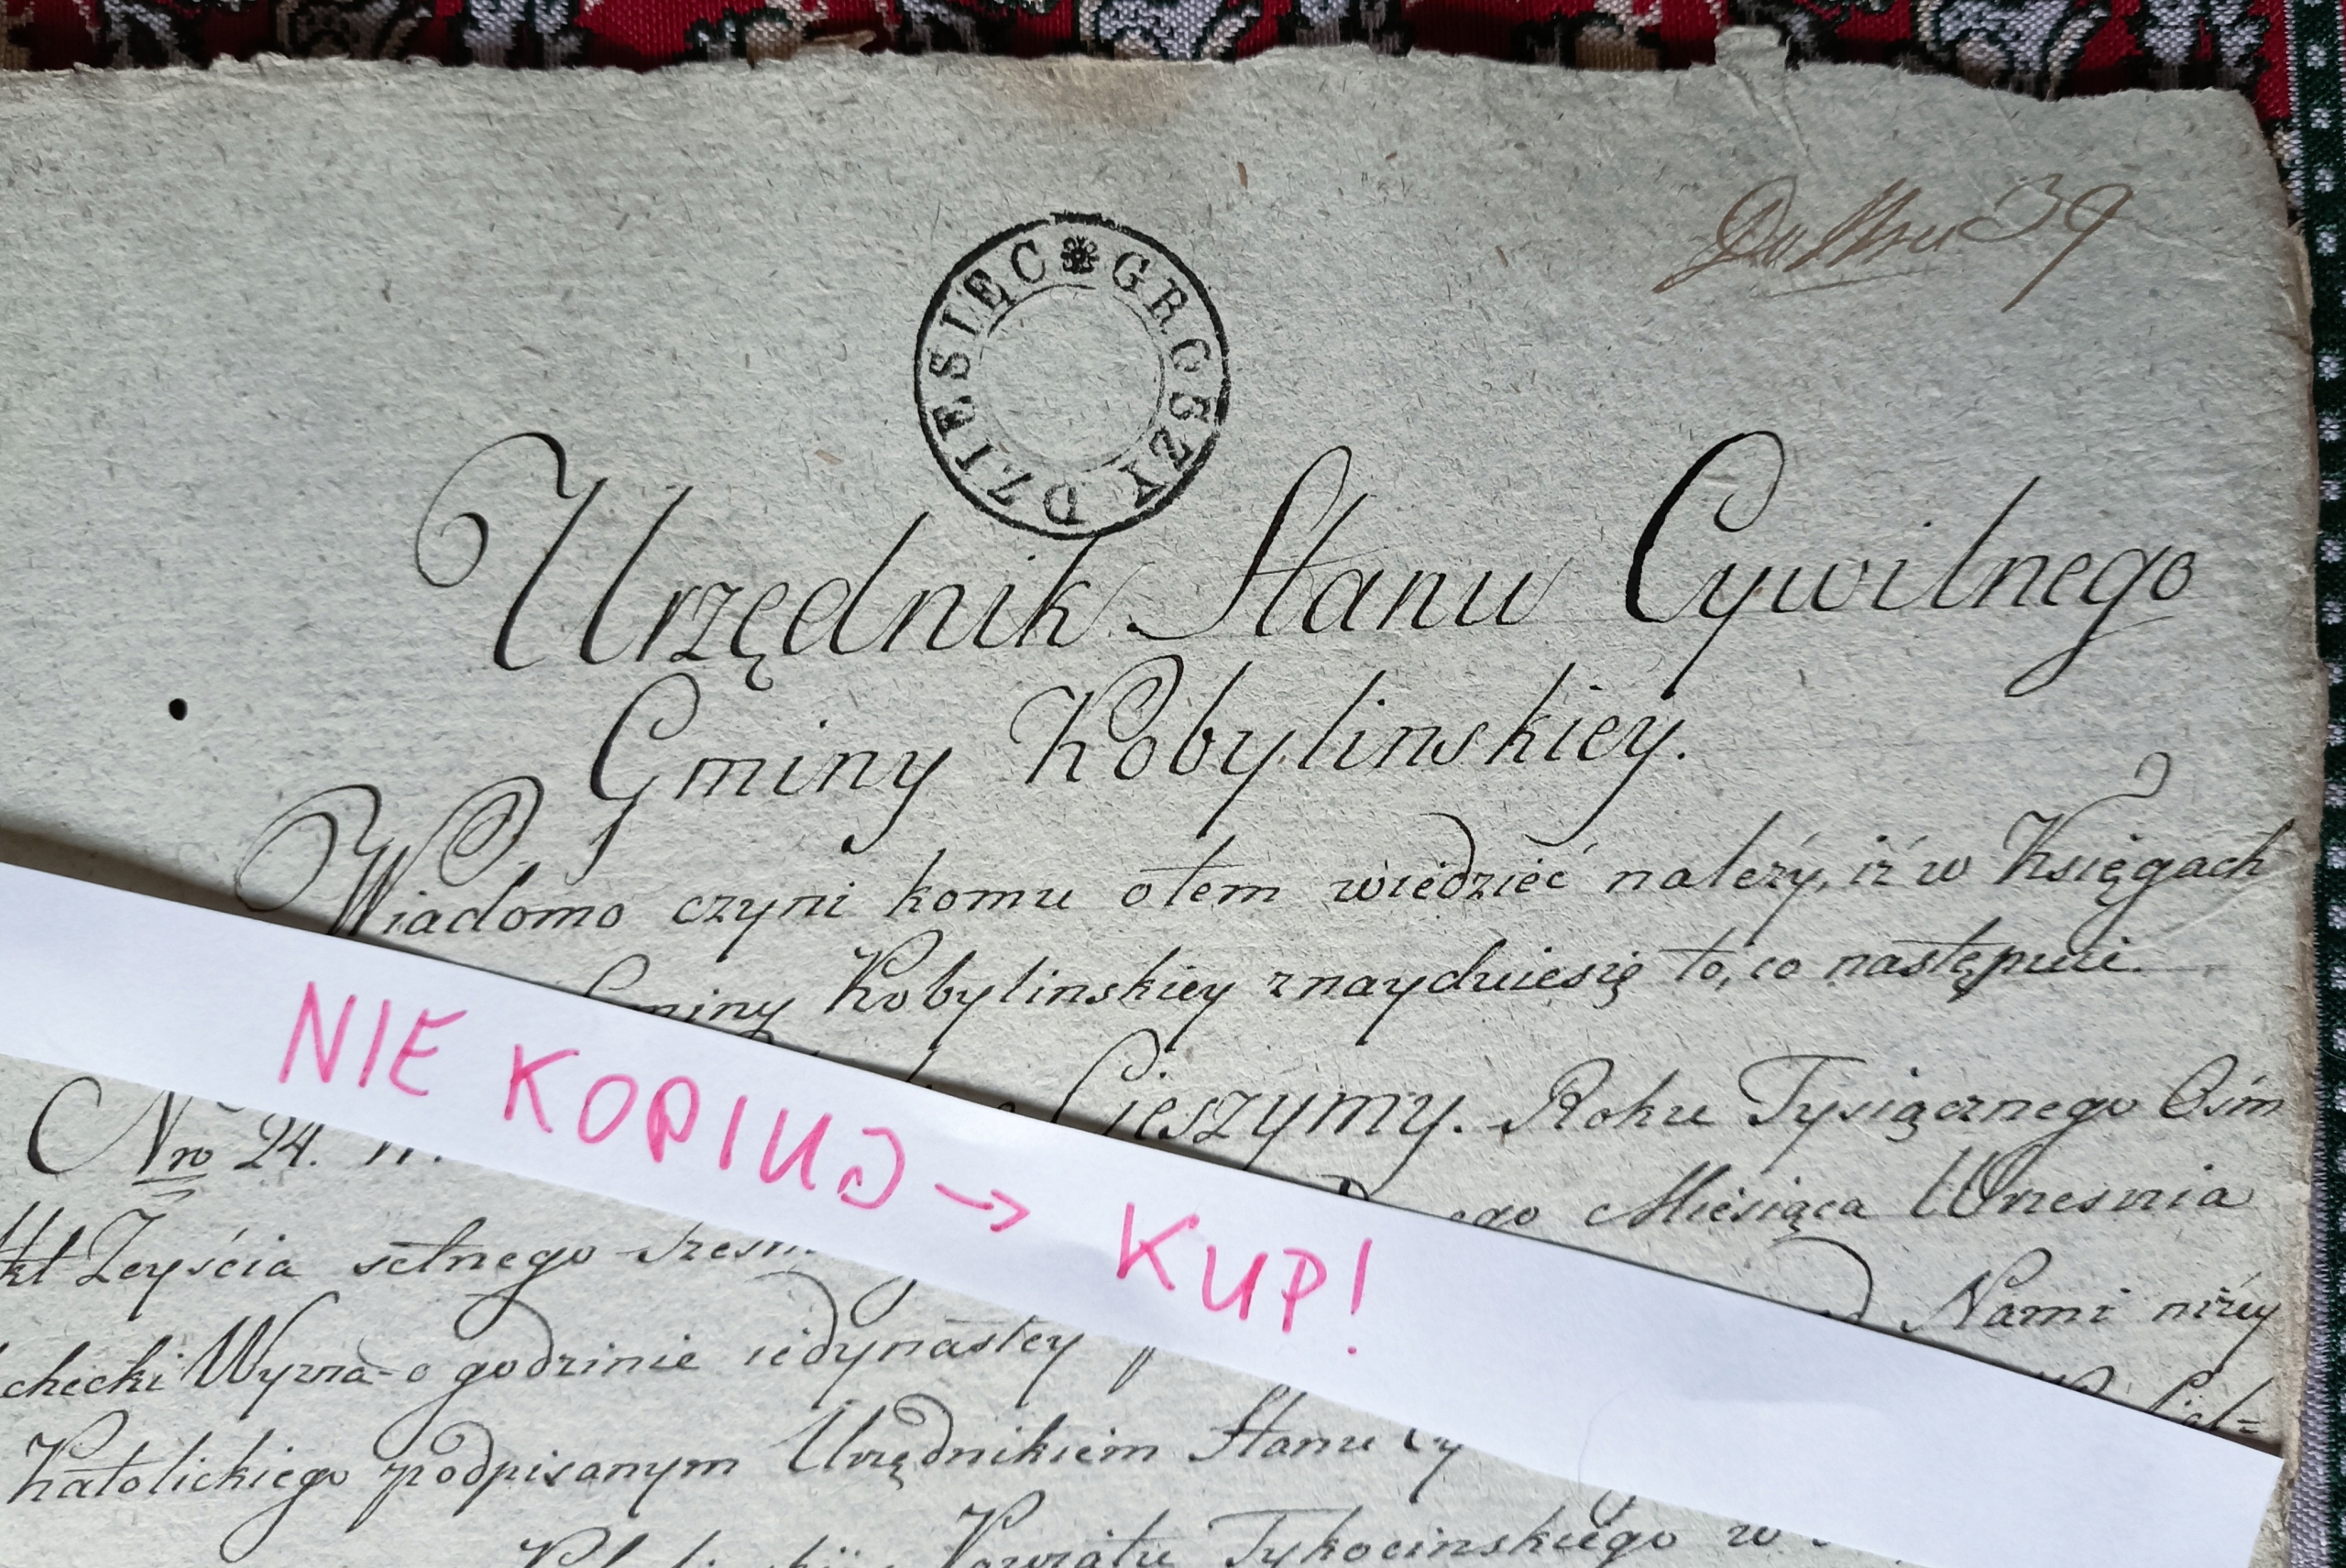 Do Nru 39
GROSZY DZIESIĘC
Urzędnik Stanu Cywilnego
Gminy Kobylinskiey.
Wiadomo czyni komu otem wiedzieć należy, iż w Księgach
Gminy Kobylinskiey znayduiesię to, co następuie.
Cieszymy. Roku Tysiącznego Ośm
Nro 24.
Miesiąca Wrzesnia
Zeyścia setnego
Nami niżey
o godzinie iedynastey
Katolickiego podpisanym Urzędnikiem Stanu Cy
Powiatu Tykocinskiego w
NIE KOPIUJ → KUP!